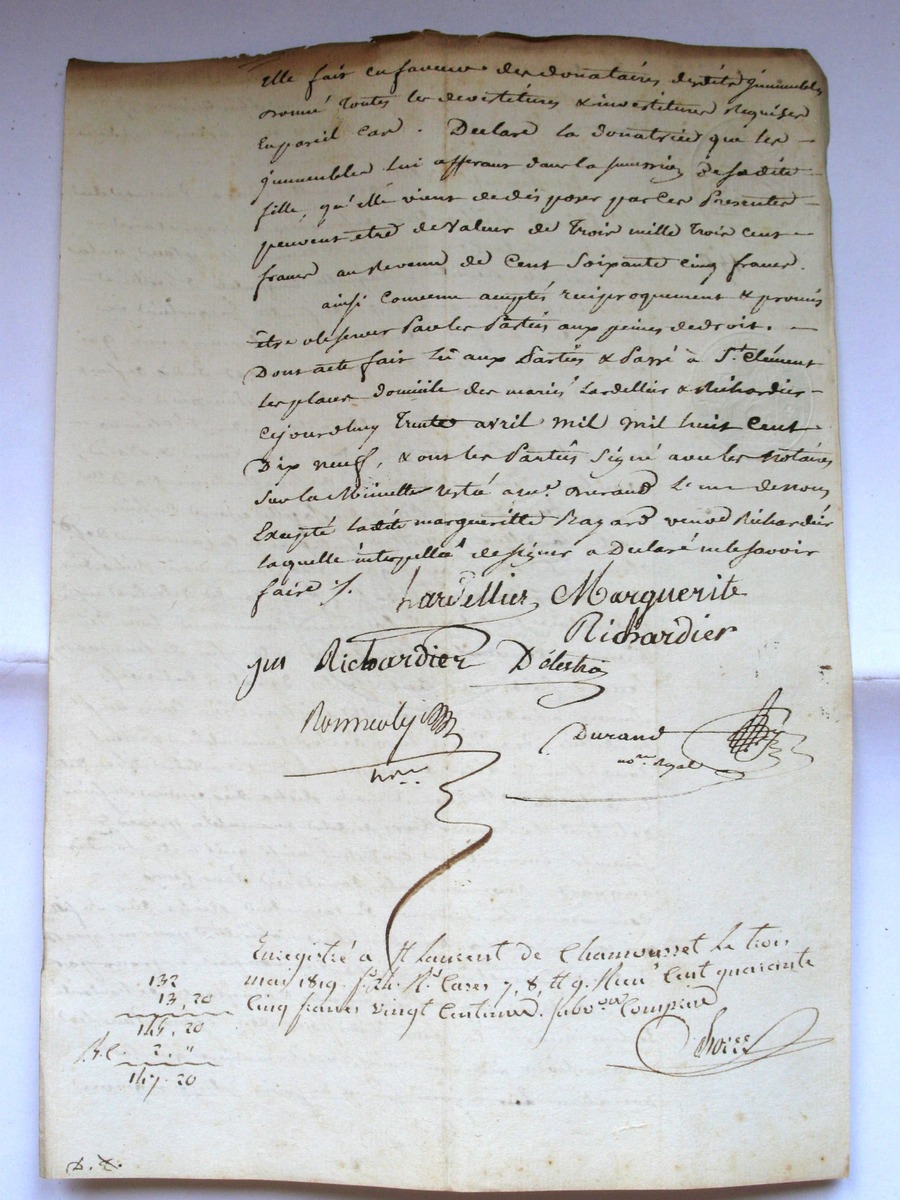 Elle fait en faveur des donataires desdits immeubles
donné toutes les devestitures & investitures Requises
En pareil Cas. Declare la donatrice que les
immeubles lui afferant dans la succession de sadite
fille, qu'elle vient de disposer par ces Presentes
peuvent etre de Valeur de Trois mille Trois Cent
francs au Revenu de Cent Soixante Cinq francs.
ainsi Convenu acceptés reciproquement & promis
être observer Par les Parties aux peines de droit.
Dont acte fait lû aux Parties & Passé à St. Clément
les places domicile des mariés Lardellier & Richardier
cejourdhuy Trente avril Mil Mil huit Cent
Dix neuf, & ont les Parties Signé avec les Notaires
Sur la Minutte restée a Me. Durand L'un de nous
Excepté Ladite margueritte Bazard veuve Richardier
laquelle interpellée de signer a Declaré ne le savoir
faire /.
Lardellier Marguerite
Richardier
jm Richardier Dalestra
Durand
nore. Royal
nore.
Enregistré a St Laurent de Chamousset Le trois
mai 1819. fo. 24. Ro. Cases 7, 8, et 9. Recu Cent quarante
Cinq francs vingt Centimes. subvon Comprise
132
13,20
145,20
2,"
147.20